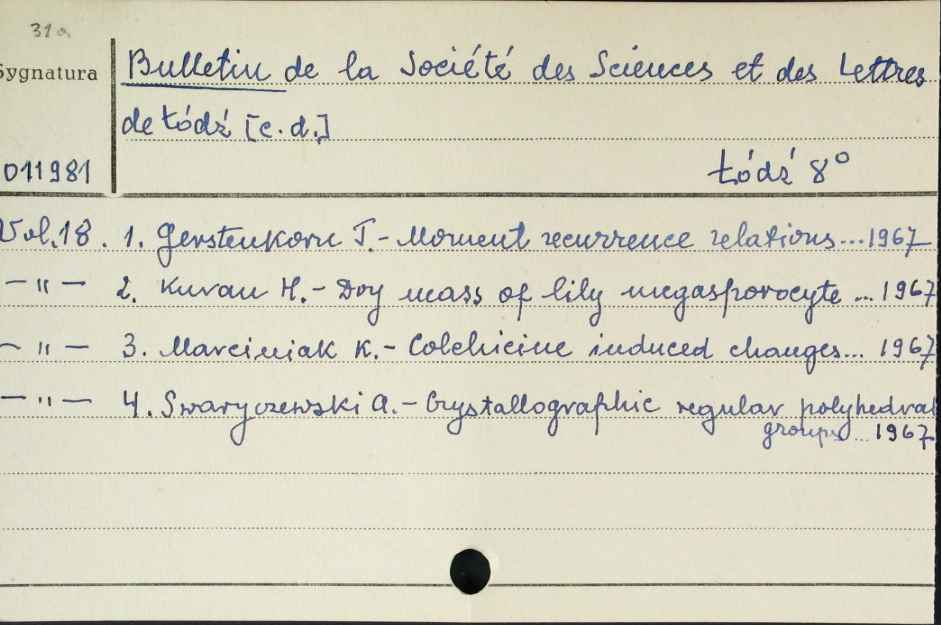 31a
Sygnatura
Bulletin de la Société des Sciences et des Lettres
de Łódź [c.d.]
011981
Łódź 8°
Vol.18. 1. Gerstenkorn T.- Moment recurrence relations...1967
— " — 2. Kuran H.- Dry mass of lily megasporocyte ... 1967
— " — 3. Marciniak K.- Colchicine induced changes... 1967
— " — 4. Swaryczewski A.- Crystallographic regular polyhedral
groups... 1967